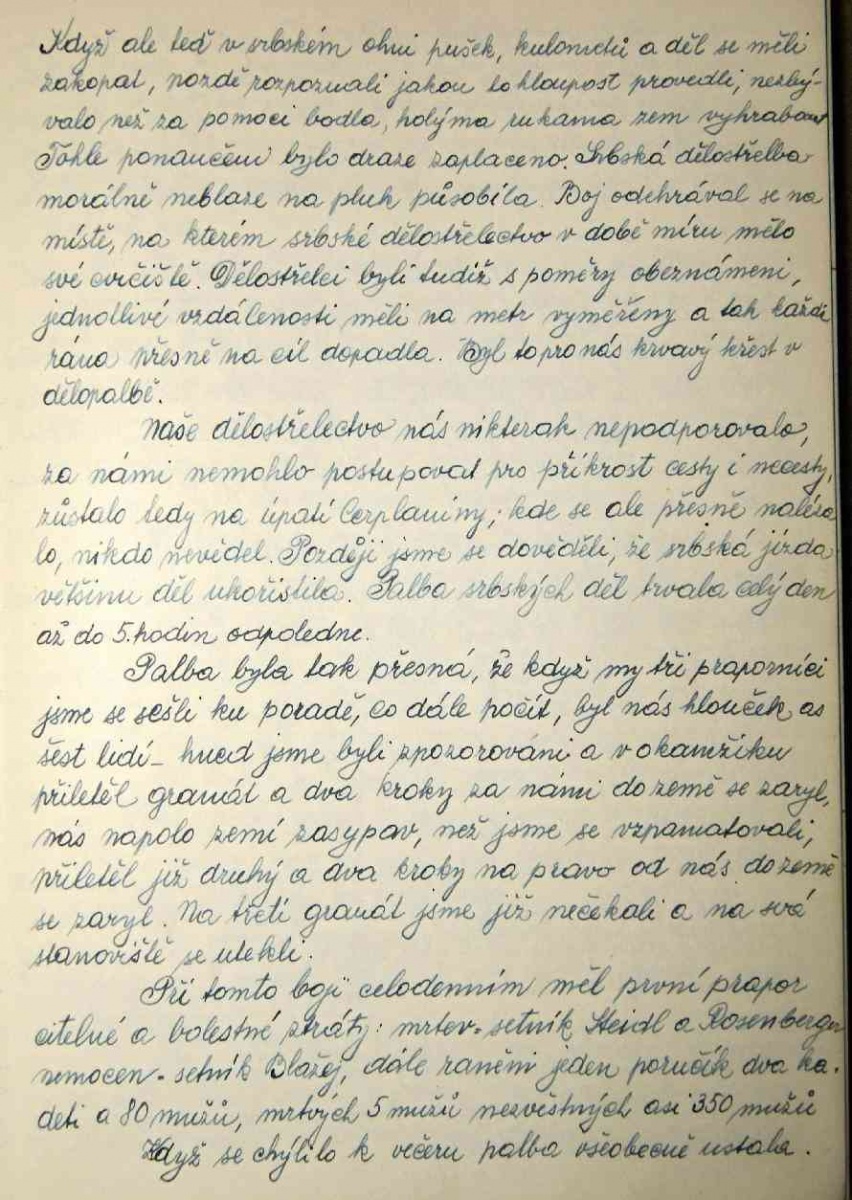 Když ale teď v srbském ohni pušek, kulometů a děl se měli
zakopat, pozdě rozpoznali jakou to hloupost provedli, nezbý-
valo než za pomoci bodla, holýma rukama zem vyhrabovat
Tohle ponaučení bylo draze zaplaceno. Srbská dělostřelba
morálně neblaze na pluk působila. Boj odehrával se na
místě, na kterém srbské dělostřelectvo v době míru mělo
své cvičiště. Dělostřelci byli tudíž s poměry obeznámeni,
jednotlivé vzdálenosti měli na metr vyměřeny a tak každi
rána přesně na cíl dopadla. Byl to pro nás krvavý křest v
dělopalbě.
Naše dělostřelectvo nás nikterak nepodporovalo,
za námi nemohlo postupovat pro příkrost cesty i necesty,
zůstalo tedy na úpatí Cerplaniny; kde se ale přesně naléza
lo, nikdo nevěděl. Později jsme se dověděli, že srbská jízda
většinu děl ukořistila. Palba srbských děl trvala celý den
až do 5. hodin odpoledne.
Palba byla tak přesná, že když my tři praporníci
jsme se sešli ku poradě, co dále počít, byl nás hlouček as
šest lidí - hned jsme byli zpozorováni a v okamžiku
přiletěl granát a dva kroky za námi do země se zaryl,
nás napolo zemí zasypav, než jsme se vzpamatovali,
přiletěl již druhý a dva kroky na pravo od nás do země
se zaryl. Na třetí granát jsme již nečekali a na svá
stanoviště se utekli.
Při tomto boji celodenním měl první prapor
citelné a bolestné ztráty: mrtev - setník Heidl a Rosenberger
nemocen - setník Blažej, dále raněni jeden poručík dva ka-
deti a 80 mužů, mrtvých 5 mužů nezvěstných asi 350 mužů
Když se chýlilo k večeru palba všeobecně ustala.